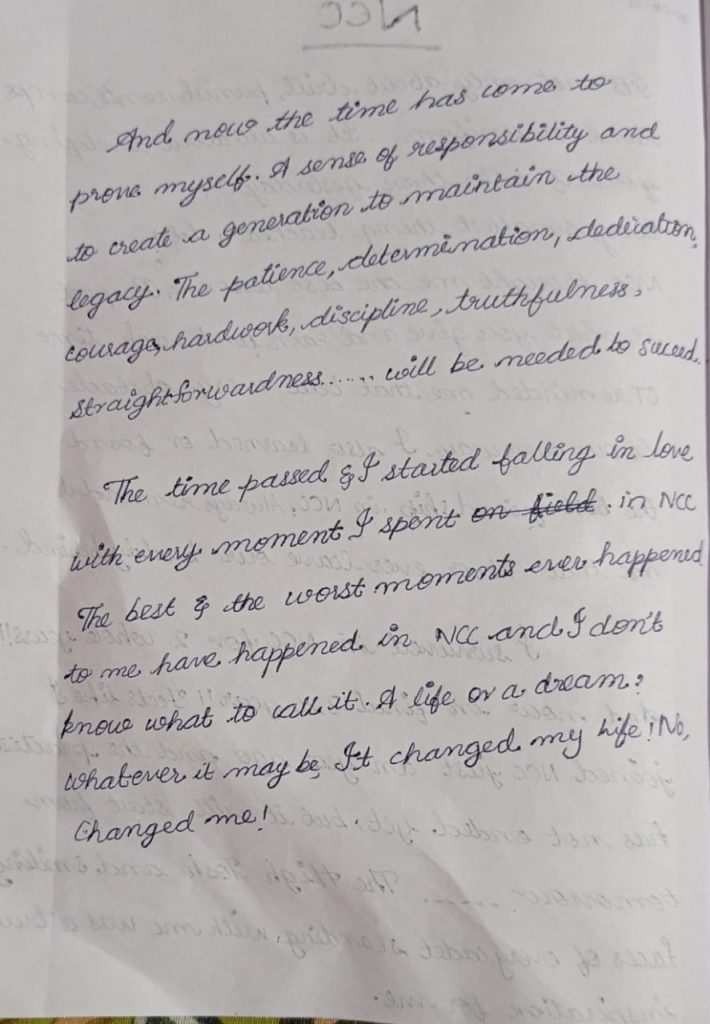 And now the time has come to
prove myself.. A sense of responsibility and
to create a generation to maintain the
legacy. The patience, determination, dedication,
courage, hardwork, discipline, truthfulness,
straightforwardness...... will be needed to suceed.
The time passed & I started falling in love
with every moment I spent on field. in NCC
The best & the worst moments ever happened
to me have happened in NCC and I don't
know what to call it. A life or a dream?
whatever it may be, It changed my life! No,
Changed me!